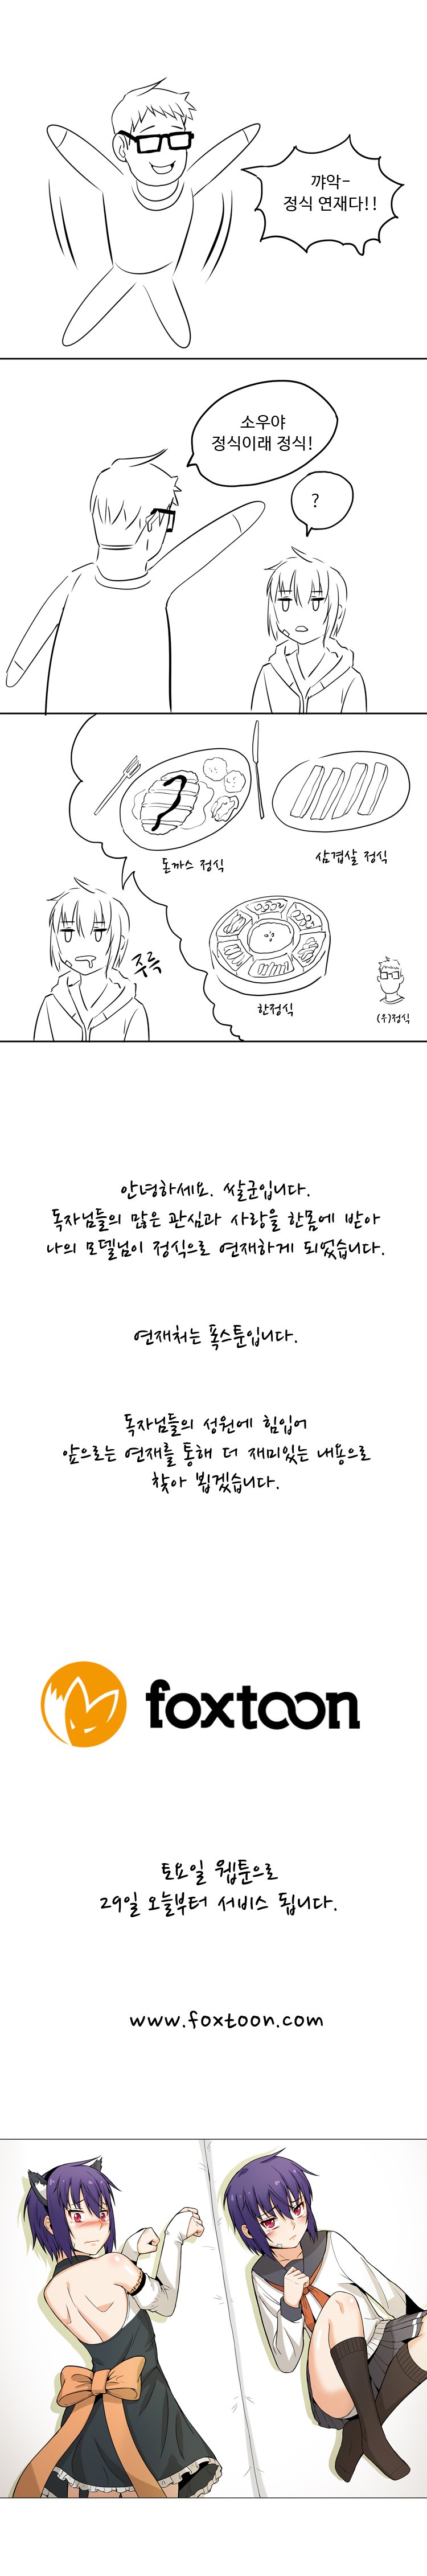 꺄악-
정식 연재다!!
소우야
정식이래 정식!
?
돈까스 정식
삼겹살 정식
주륵
한정식
(우)정식
안녕하세요. 쌀군입니다.
독자님들의 많은 관심과 사랑을 한몸에 받아
나의 모델님이 정식으로 연재하게 되었습니다.
연재처는 폭스툰입니다.
독자님들의 성원에 힘입어
앞으로는 연재를 통해 더 재미있는 내용으로
찾아 뵙겠습니다.
foxtoon
토요일 웹툰으로
29일 오늘부터 서비스 됩니다.
www.foxtoon.com